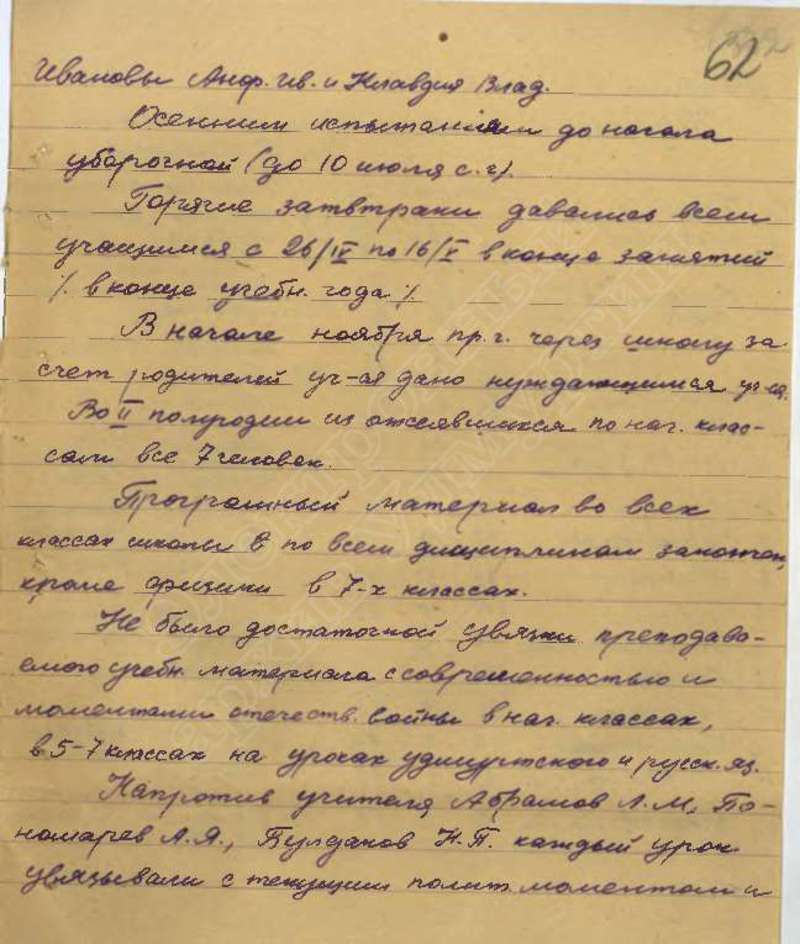 62
Ивановы Анф. Ив. и Клавдия Влад.
Осенним испытаниям до начала
уборочной (до 10 июля с.г.).
Горячие затвтраки давались всем
учащимся с 26/IV по 16/V в конце занятий
/. в конце учебн. года ./.
В начале ноября пр. г. через школу за
счет родителей уч-ся дано нуждающимся уч-ся.
Во II полугодии из отсеявшихся по нач. клас-
сам все 7 человек.
Програмный материал во всех
классах школы в по всем дисциплинам закончен,
кроме физики в 7-х классах.
Не было достаточной увязки преподава-
емого учебн. материала с современностью и
моментами отечеств. войны в нач. классах,
в 5-7 классах на уроках удмуртского и русск. яз.
Напротив учителя Абрамов Л.М., По-
номарев А.Я., Булдаков Н.П. каждый урок
увязывали с текущим полит. моментом и